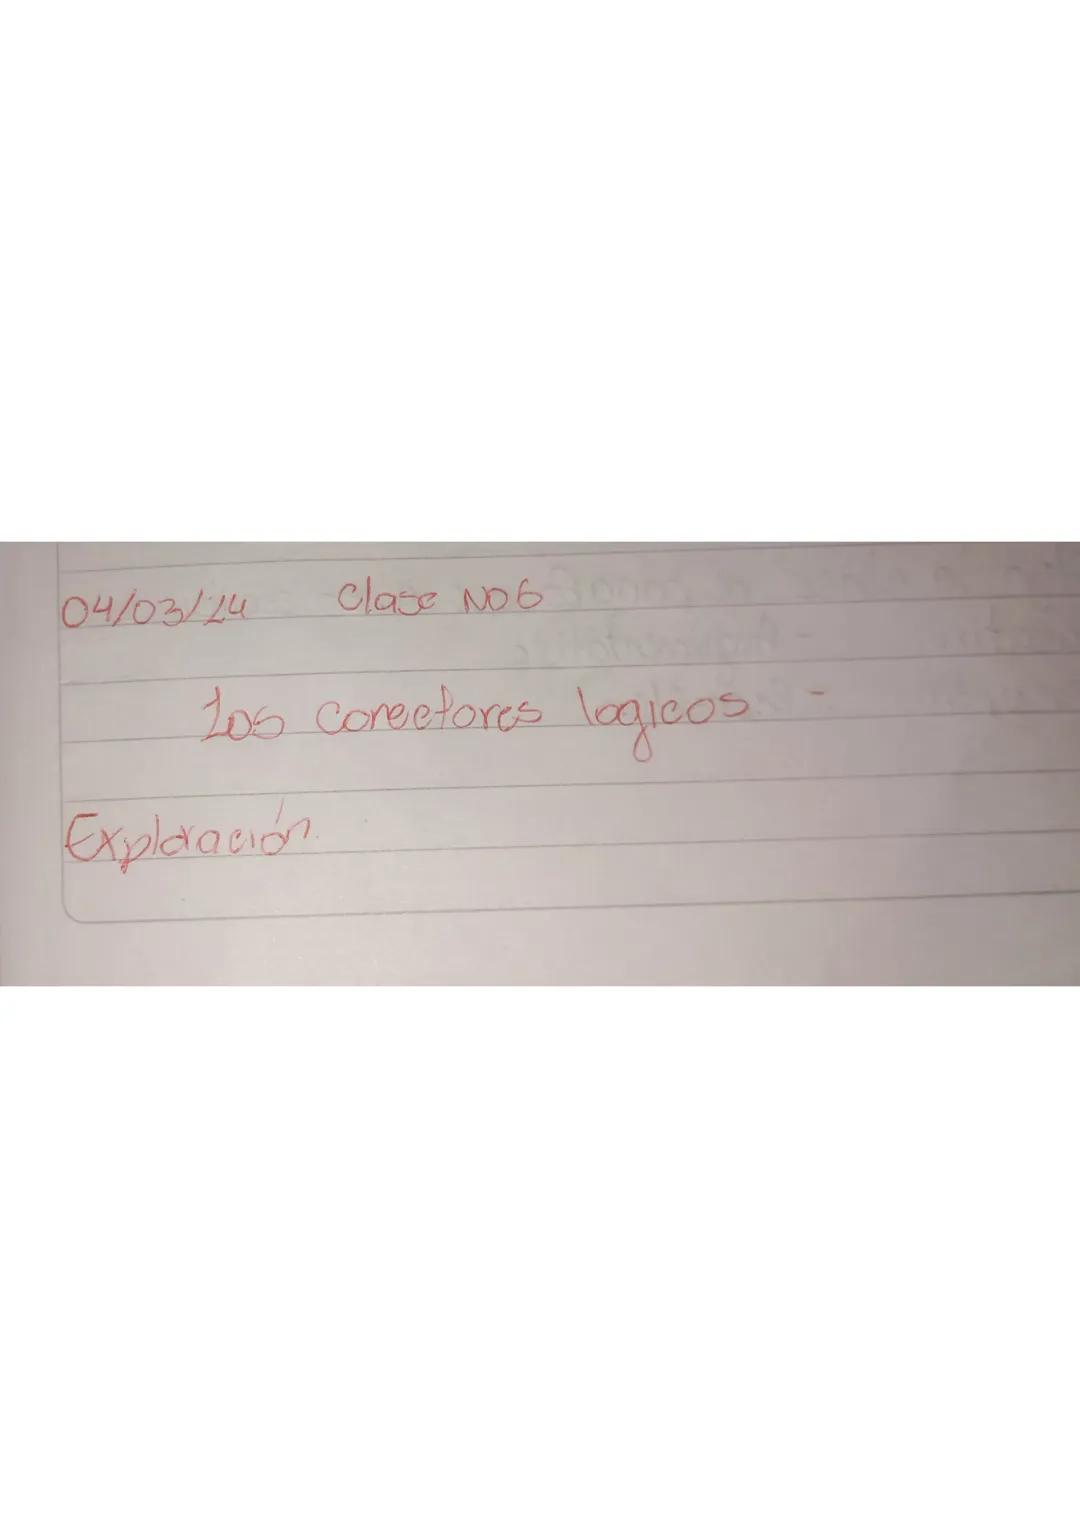 04/03/24 Clase NO6
Los conectores logicos -
Exploración.